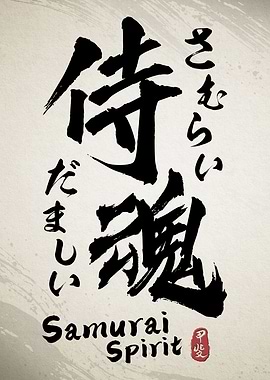 侍魂
さむらい
だましい
Samurai
Spirit